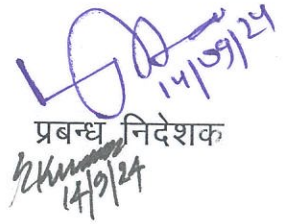 14/09/24
प्रबन्ध निदेशक
14/9/24